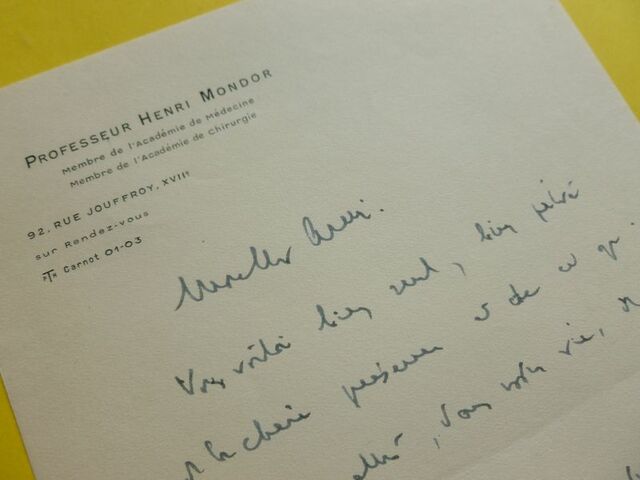 PROFESSEUR HENRI MONDOR
Membre de l'Académie de Médecine
Membre de l'Académie de Chirurgie
92, RUE JOUFFROY, XVIIe
sur Rendez-vous
Carnot 01-03
Vous voilà bien seul, bien privé
la chère présence et de ce qu
vous votre vie,